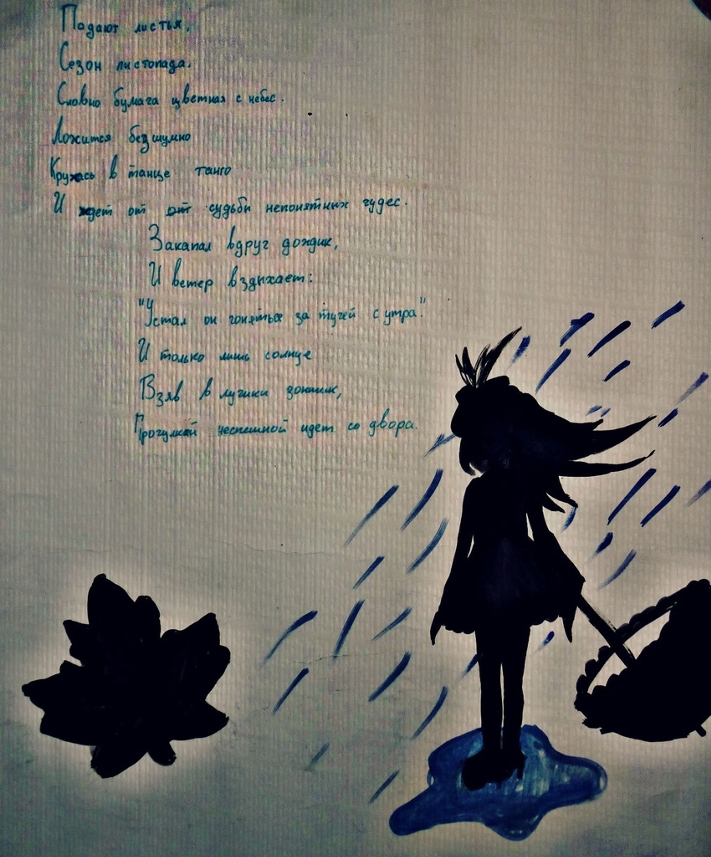 Падают листья,
Сезон листопада.
Словно бумага цветная с небес.
Ложится безшумно
Кружась в танце танго
И ждет от от судьбы непонятных чудес.
Закапал вдруг дождик,
И ветер вздыхает:
"Устал он гоняться за тучей с утра".
И только лишь солнце
Взяв в лучики зонтик,
Прогулкой неспешной идет со двора.